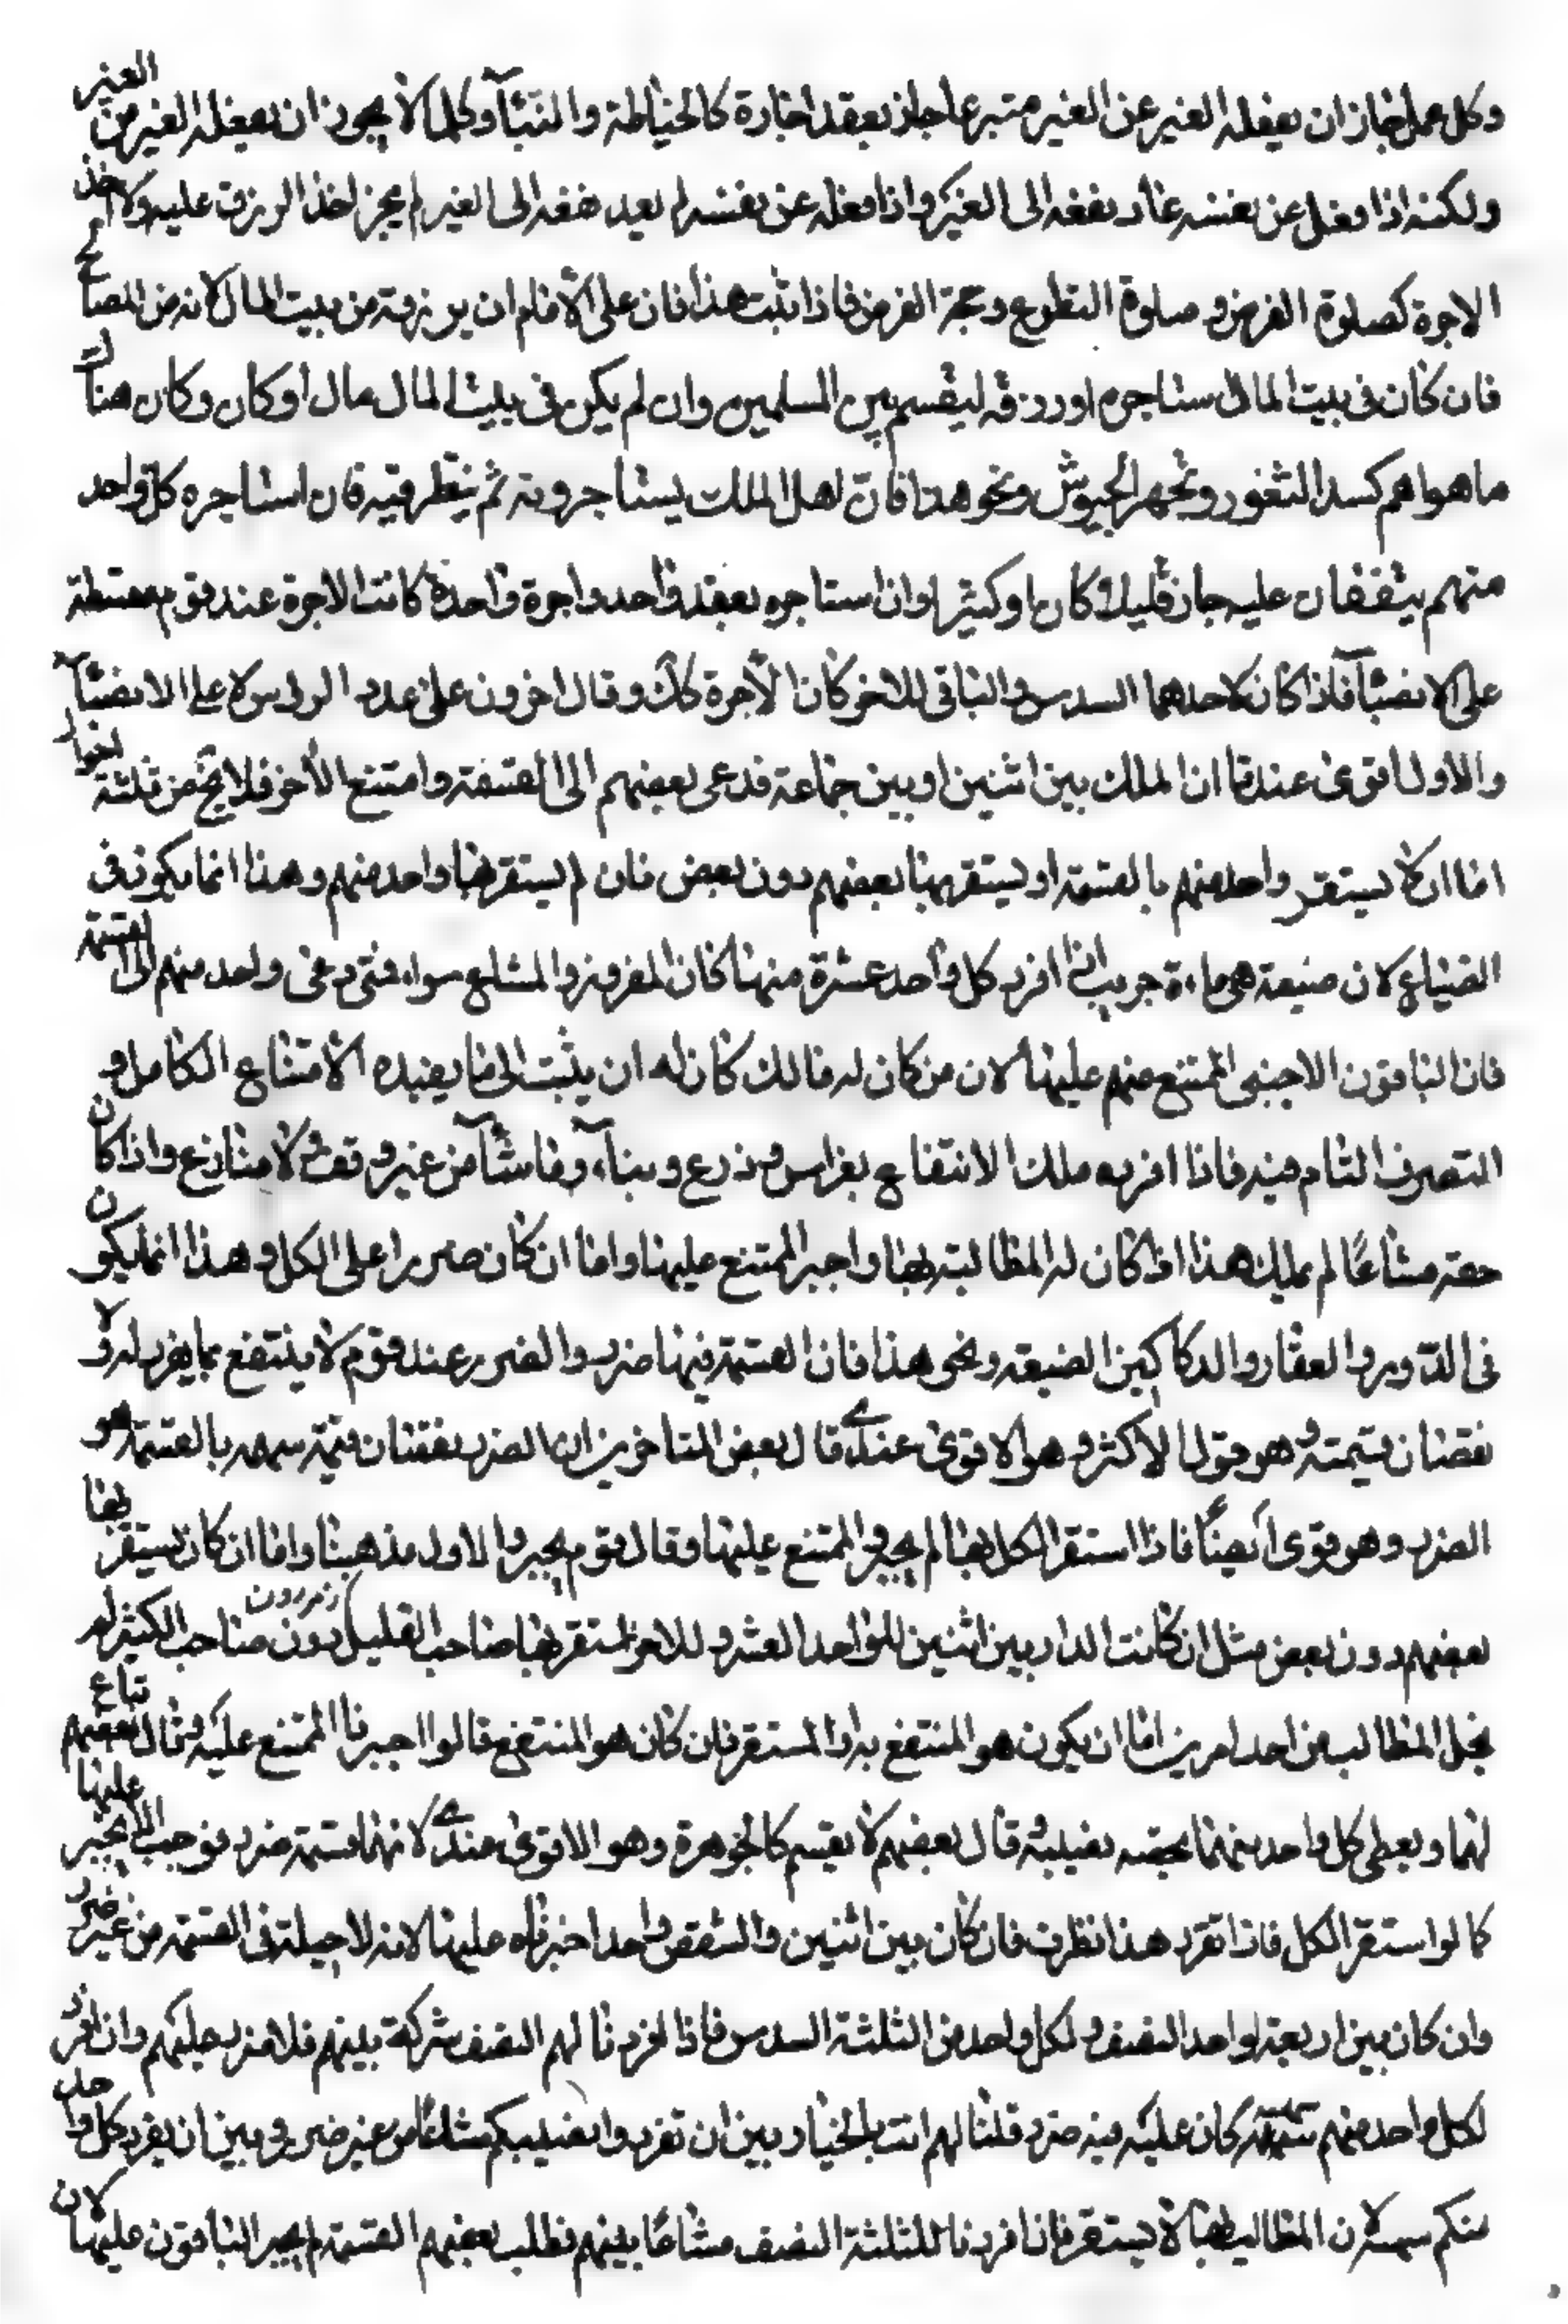 وكل عمل جاز ان يفعله الغير عن الغير متبرعا جاز بعقد اجارة كالخياطة والبناء وكلما لا يجوز ان يفعله الغير من الغير
ولكنه اذا فعل عن نفسه عاد نفعه الى الغير واذا فعله عن نفسه لم يعد نفعه الى الغير لم يجز اخذ الرزق عليه ولا اخذ
الاجرة كصلوة الفرض و صلوة التطوع وحجة الفرض فاذا ثبت هذا فان على الامام ان يرزقه من بيت المال لانه من المصالح
فان كان في بيت المال استاجره اورزقه ليقسم بين المسلمين وان لم يكن في بيت المال مال او كان وكان هناك
ما هو اهم كسد الثغور وتجهيز الجيوش ونحو هذا فان اهل الملك يستاجرونه ثم ينظر فيه فان استاجره كل واحد
منهم يتفقان عليه جاز قليلا كان او كثيرا وان استاجروه بعقد واحد واجرة واحدة كانت الاجرة عند قوم مقسطة
على الانصباء فاذا كان لاحدهما السدس والباقي للاخر كان الاجرة كك وقال اخرون على عدد الروس لا على الانصباء
والاول اقوى عندنا ان الملك بين اثنين او بين جماعة فدعى بعضهم الى القسمة وامتنع الاخر فلا يخ من ثلثة احوال
اما ان لا يستقر واحد منهم بالقسمة او يستقر بها بعضهم دون بعض فان لم يستقر بها واحد منهم وهذا انما يكون في
الضياع لان ضيعة هي ماءة جريب اذا افرد كل واحد عشرة منها كان المفروز والمشاع سواء فمتى دعى واحد منهم الى القسمة
فان الباقون الاجنبي الممتنع منهم عليها لان من كان له مالك كان له ان يثبت الى ما يفيده الامتناع الكامل و
التصرف التام فيه فاذا افرده ملك الانتفاع بغراس وزرع وبناء وما شاء من غير وقف ولا منازع واذا كان
حقه مشاعًا لم يملك هذا اذ كان له المطالبة بها واجبر الممتنع عليها واما ان كان ضررا على الكل وهذا انما يكون
في الدور والعقار والدكاكين الضيقه ونحو هذا فان القسمة فيها ضرر والضرر عند قوم لا ينتفع بما يفرد له ولا
نقصان قيمته وهو قول الاكثر وهو الاقوى عندي قال بعض المتاخرين ان الضرر نقصان قيمة سهمه بالقسمة هو
الضرر وهو قوى ايضًا فاذا استقر الكل بها لم يجبر الممتنع عليها وقال قوم يجبر والاول مذهبنا واما ان كان يستقر بها
بعضهم دون بعض مثل ان كانت الدار بين اثنين للواحد العشر وللاخر استقر بها صاحب القليل دون صاحب الكثير لم
يخل المطالب من احد امرين اما ان يكون هو المنتفع به او المستقر فان كان هو المنتفع قالوا اجبرنا الممتنع عليه وقال بعضهم تباع
لهما ويعطى كل واحد منهما بحصه نصيبه وقال بعضهم لا يقسم كالجوهرة وهو الاقوى عندي لانهما قسمة ضرر فوجب الا يجبر عليها
كما لو استقر الكل فاذا تقرر هذا نظرت فان كان بين اثنين والشقص واحد اخبرناه عليها لانه لا حيلة في القسمة من غير ضرر
وان كان بين اربعة لواحد النصف ولكل واحد من الثلثة السدس فاذا افردنا لهم النصف شركة بينهم فلا ضرر عليهم وان افرد
لكل واحد منهم سهمه كان عليه فيه ضرر قلنا لهم انت بالخيار بين ان تفردوا نصيبكم مشاعًا من غير ضرر وبين ان يفرد كل واحد
منكم سهمه لان المطالب بها لا يستقر فان افردنا للثلثة النصف مشاعًا بينهم فطلب بعضهم القسمة لم يجبر الباقون عليها لان